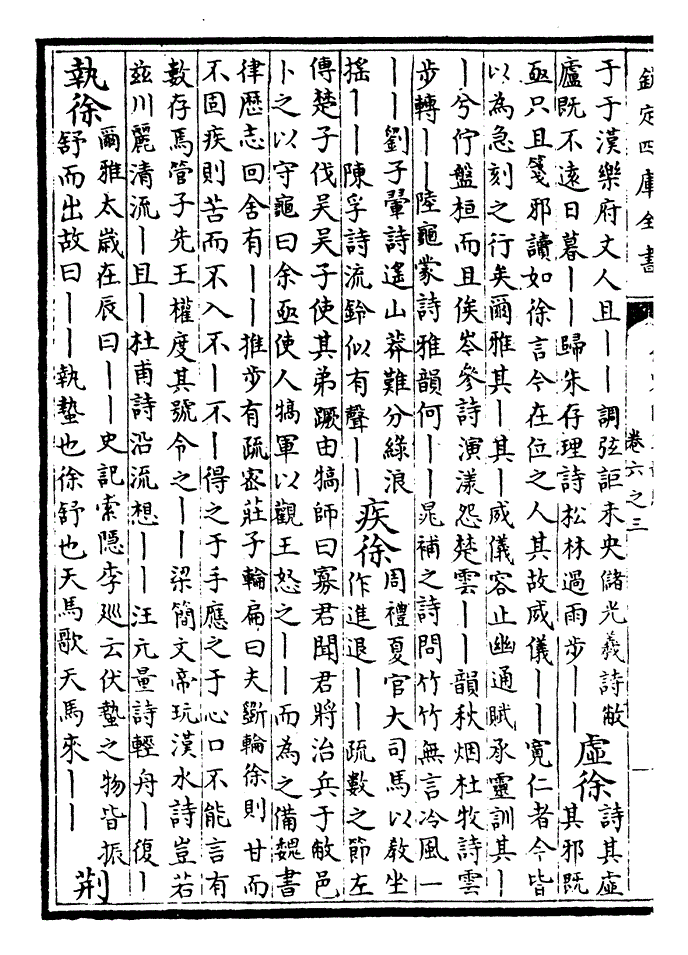 欽定四庫全書
卷六之三
于于漢樂府丈人且丨丨調弦詎未央儲光羲詩敝
廬既不遠日暮丨丨歸朱存理詩松林過雨步丨丨
虛徐
詩其虛
其邪既
亟只且箋邪讀如徐言今在位之人其故威儀丨丨寬仁者今皆
以為急刻之行矣爾雅其丨其丨威儀容止幽通賦承靈訓其丨
丨兮佇盤桓而且俟岑參詩演漾怨楚雲丨丨韻秋烟杜牧詩雲
步轉丨丨陸龜蒙詩雅韻何丨丨晁補之詩問竹竹無言冷風一
丨丨劉子翬詩遙山莽難分綠浪
搖丨丨陳孚詩流鈴似有聲丨丨
疾徐
周禮夏官大司馬以教坐
作進退丨丨疏數之節左
傳楚子伐吳吳子使其弟蹶由犒師曰寡君聞君將治兵于敝邑
卜之以守龜曰余亟使人犒軍以觀王怒之丨丨而為之備魏書
律歴志回舍有丨丨推步有疏宻莊子輪扁曰夫斵輪徐則甘而
不固疾則苦而不入不丨不丨得之于手應之于心口不能言有
數存焉管子先王權度其號令之丨丨梁簡文帝玩漢水詩豈若
兹川麗清流丨且丨杜甫詩沿流想丨丨汪元量詩輕舟丨復丨
執徐
爾雅太歲在辰曰丨丨史記索隱李廵云伏蟄之物皆振
舒而出故曰丨丨執蟄也徐舒也天馬歌天馬來丨丨
荆